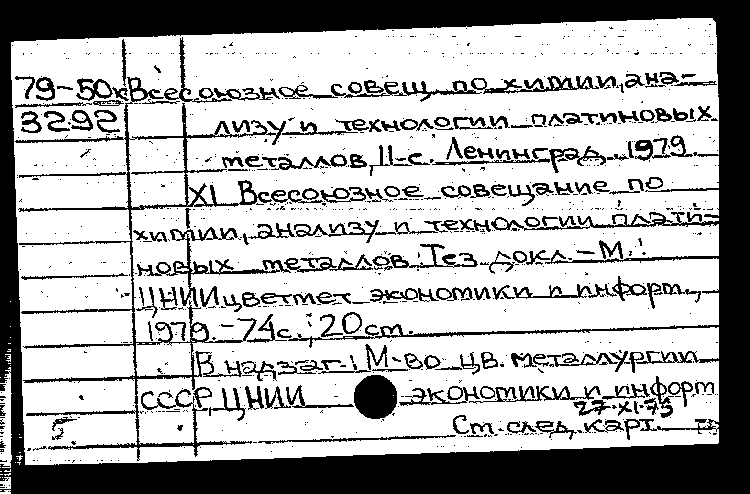 79-50к Всесоюзное совещ. по химии, ана-
3292 лизу и технологии платиновых
металлов, 11-е. Ленинград. 1979.
XI Всесоюзное совещание по
химии, анализу и технологии плати-
новых металлов: Тез. докл. - М.:
ЦНИИцветмет экономики и информ.,
1979. - 74с.; 20см.
В надзаг.: М-во цв. металлургии
СССР, ЦНИИ экономики и информ
27.XI.79
5. См. след. карт.